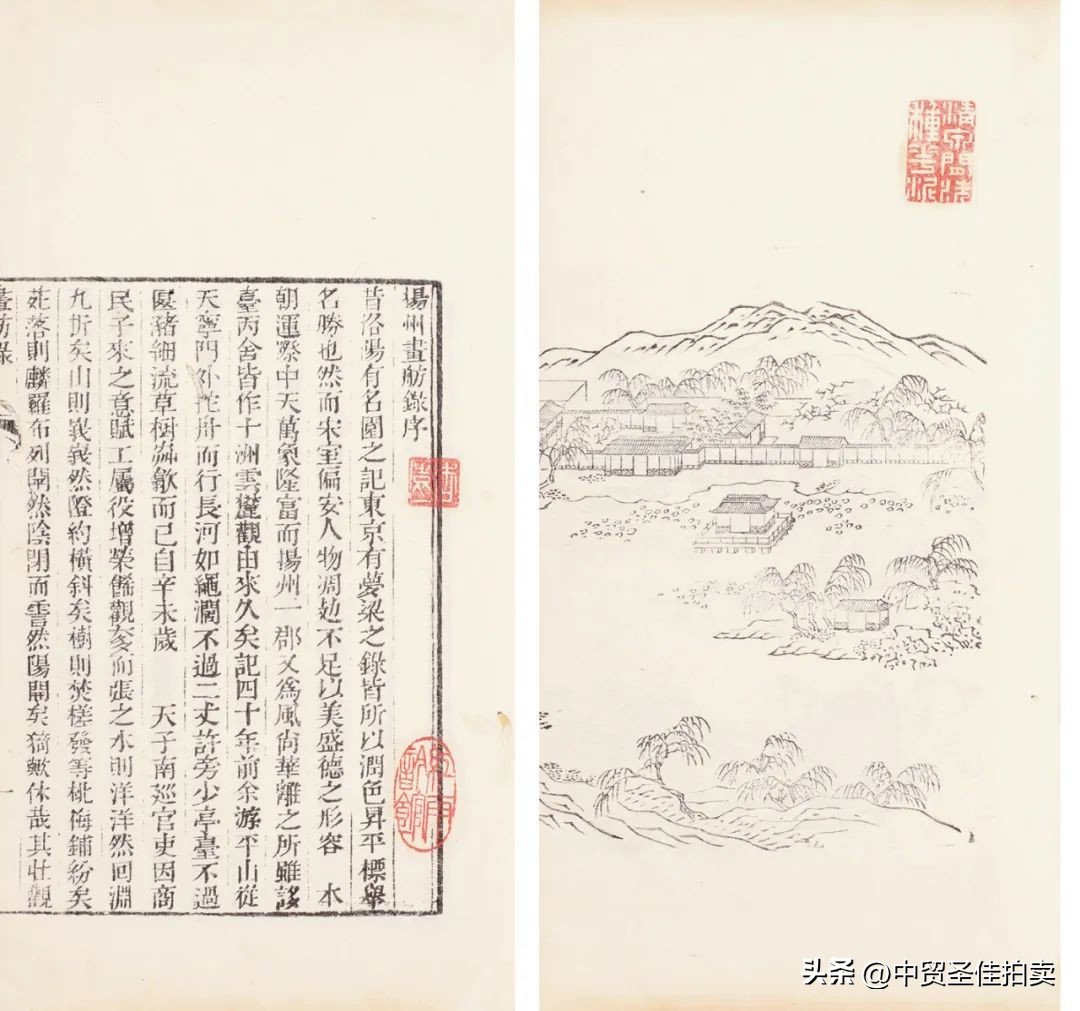 揚州畫舫錄序
昔洛陽有名園之記東京有夢梁之錄皆所以潤色昇平標舉
名勝也然而宋室偏安人物凋尠不足以美盛德之形容 本
朝運際中天萬象隆富而揚州一郡又為風尚華離之所雖諺
臺丙舍皆作十洲雲麓觀由來久矣記四十年前余游平山從
天寧門外拕舟而行長河如繩濶不過二丈許旁少亭臺不過
匽潴細流草樹歛而已自辛未歲 天子南巡官吏因商
民子來之意賦工屬役增榮飾觀奓而張之水則洋洋然回淵
九折矣山則峩峩然隥約橫斜矣樹則焚槎發等桃梅鋪紛矣
苑落則麟羅布列閛然陰閉而霅然陽開矣猗歟休哉其壯觀
畫舫錄
一
種花
头条 @中贸圣佳拍卖